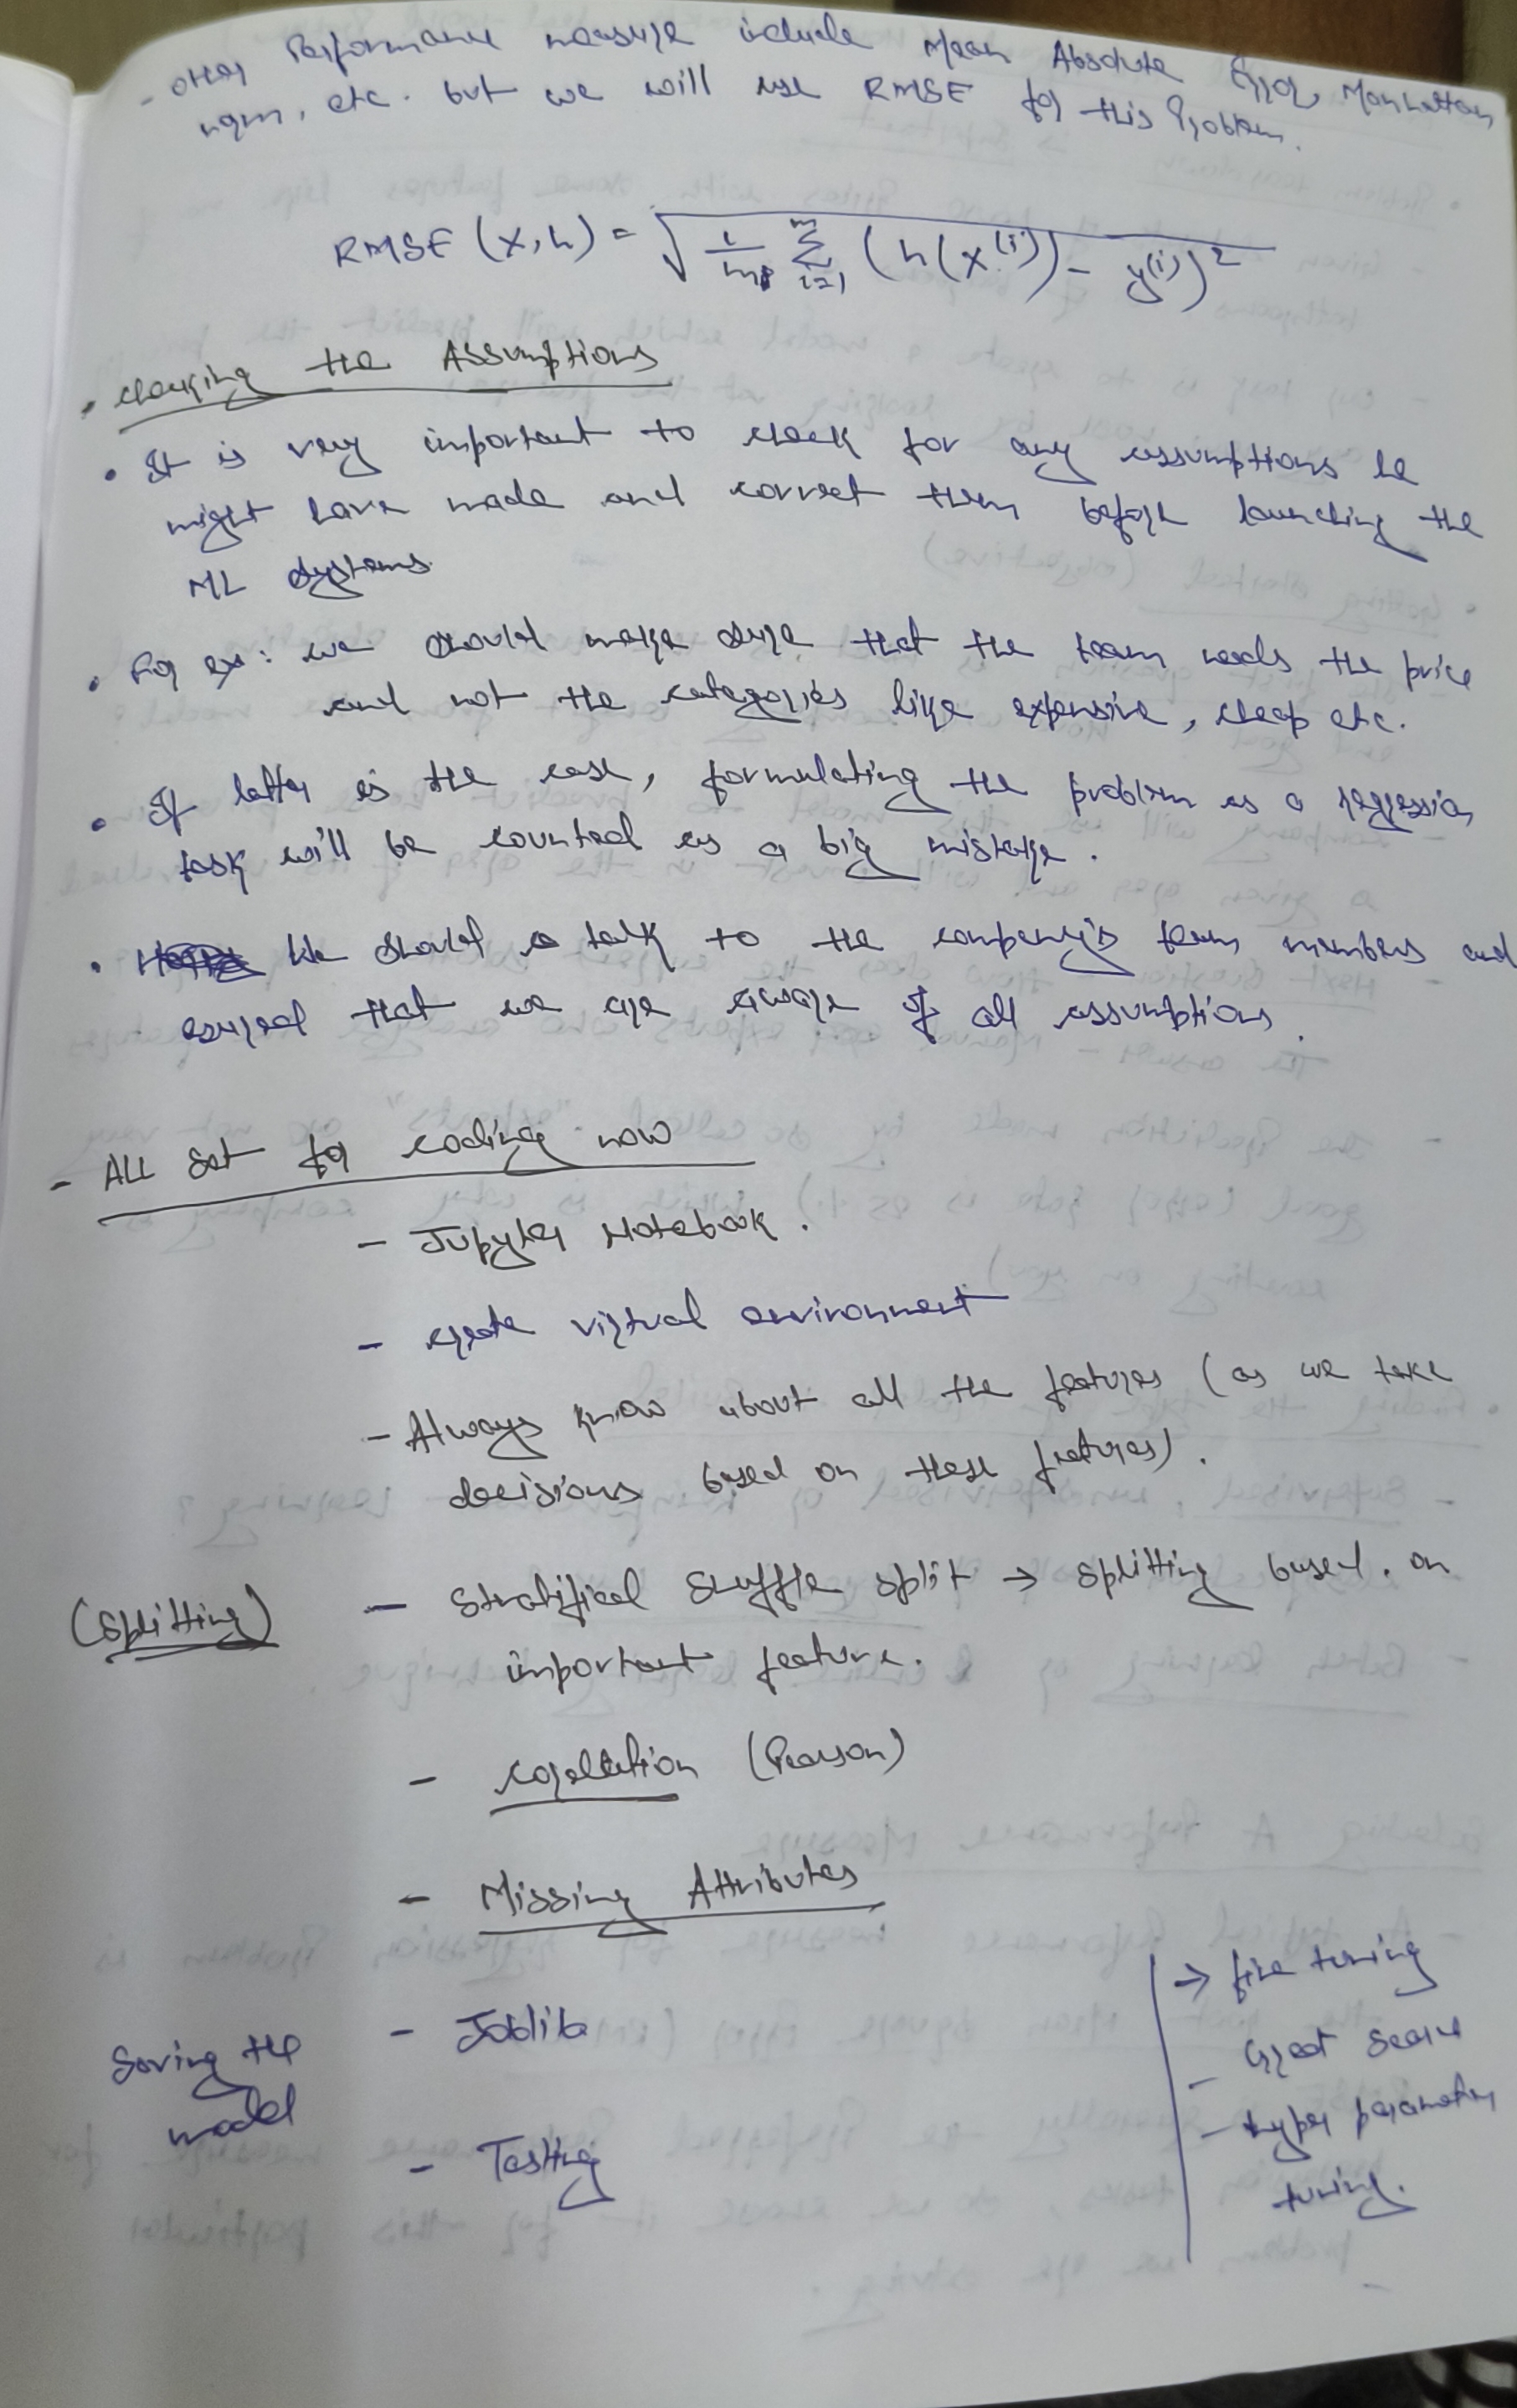 - Other Performance measure include Mean Absolute Error, Manhattan
norm, etc. but we will use RMSE for this Problem.
RMSE (X, h) = √ 1/m Σ i=1 m (h(x^(i)) - y^(i))²
• Checking the Assumptions
• It is very important to check for any assumptions he
might have made and correct them before launching the
ML systems.
• For ex: we should make sure that the team needs the price
and not the categories like expensive, cheap etc.
• If latter is the case, formulating the problem as a regression
task will be counted as a big mistake.
• We should talk to the company's team members and
ensured that we are aware of all assumptions.
- ALL Set for coding now
- Jupyter Notebook.
- create virtual environment
- Always know about all the features (as we take
decisions based on these features).
(Splitting) - Stratified Shuffle split → splitting based on
important feature.
- Correlation (Pearson)
- Missing Attributes
Saving the model - Joblib
- Testing
→ fine tuning
- Great Search
- hyper parameter
tuning.